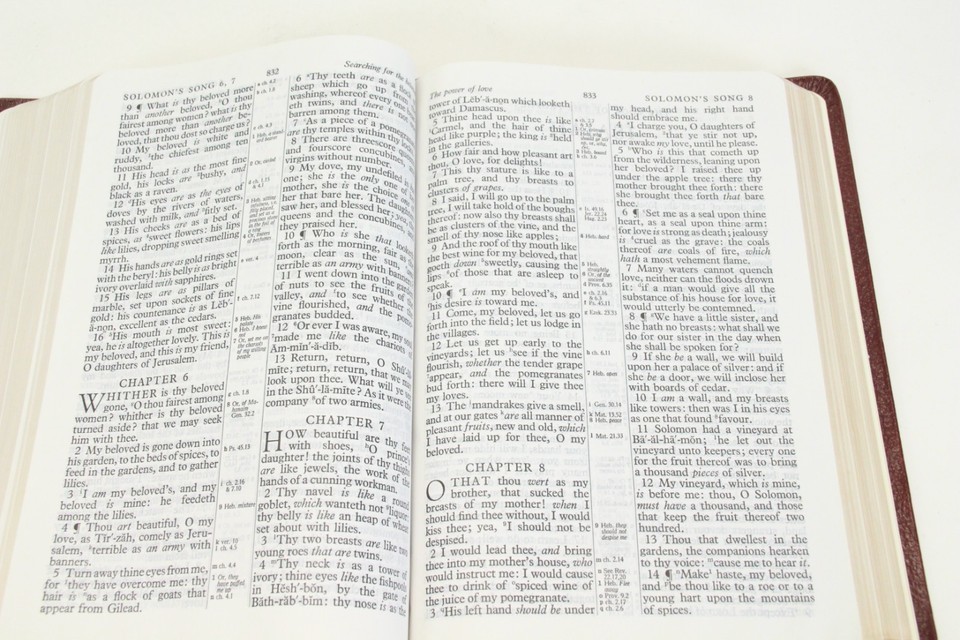 SOLOMON'S SONG 6, 7
832
Searching for the
9 ¶ What is thy beloved more
than another beloved, O thou
fairest among women? what is thy
beloved more than another be-
loved, that thou dost so charge us?
10 My beloved is white and
ruddy, the chiefest among ten
thousand.
11 His head is as the most fine
gold, his locks are bushy, and
black as a raven.
12 His eyes are as the eyes of
doves by the rivers of waters,
washed with milk, and fitly set.
13 His cheeks are as a bed of
spices, as sweet flowers: his lips
like lilies, dropping sweet smelling
myrrh.
14 His hands are as gold rings set
with the beryl: his belly is as bright
ivory overlaid with sapphires.
15 His legs are as pillars of
marble, set upon sockets of fine
gold: his countenance is as Lĕb'-
ȧ-nọn, excellent as the cedars.
16 His mouth is most sweet:
yea, he is altogether lovely. This is
my beloved, and this is my friend,
O daughters of Jerusalem.
CHAPTER 6
WHITHER is thy beloved
gone, O thou fairest among
women? whither is thy beloved
turned aside? that we may seek
him with thee.
2 My beloved is gone down into
his garden, to the beds of spices, to
feed in the gardens, and to gather
lilies.
3 I am my beloved's, and my
beloved is mine: he feedeth
among the lilies.
4 ¶ Thou art beautiful, O my
love, as Tir'-zäh, comely as Jeru-
salem, terrible as an army with
banners.
5 Turn away thine eyes from me,
for they have overcome me: thy
hair is as a flock of goats that
appear from Gilead.
6 Thy teeth are as a flock
sheep which go up from
washing, whereof every one
eth twins, and there is not
barren among them.
7 As a piece of a pomegranate
are thy temples within thy locks.
8 There are threescore
and fourscore concubines,
virgins without number.
9 My dove, my undefiled is
one; she is the only one of
mother, she is the choice one
her that bare her. The daughters
saw her, and blessed her; yea,
queens and the concubines,
they praised her.
10 ¶ Who is she that looketh
forth as the morning, fair as
moon, clear as the sun, and
terrible as an army with banners?
11 I went down into the garden
of nuts to see the fruits of the
valley, and to see whether the
vine flourished, and the pome-
granates budded.
12 Or ever I was aware, my soul
made me like the chariots of
Am-min'-ă-dib.
13 Return, return, O Shū'-
mite; return, return, that we may
look upon thee. What will ye see
in the Shū'-lă-mite? As it were the
company of two armies.
CHAPTER 7
HOW beautiful are thy feet
with shoes, O prince's
daughter! the joints of thy thighs
are like jewels, the work of the
hands of a cunning workman.
2 Thy navel is like a round
goblet, which wanteth not liquor:
thy belly is like an heap of wheat
set about with lilies.
3 Thy two breasts are like two
young roes that are twins.
4 Thy neck is as a tower of
ivory; thine eyes like the fishpools
in Hĕsh'-bŏn, by the gate of
Băth-răb'-bim: thy nose is as the
The power of love
833
SOLOMON'S SONG 8
tower of Lĕb'-ȧ-nọn which looketh
toward Damascus.
5 Thine head upon thee is like
Carmel, and the hair of thine
head like purple; the king is held
in the galleries.
6 How fair and how pleasant art
thou, O love, for delights!
7 This thy stature is like to a
palm tree, and thy breasts to
clusters of grapes.
8 I said, I will go up to the palm
tree, I will take hold of the boughs
thereof: now also thy breasts shall
be as clusters of the vine, and the
smell of thy nose like apples;
9 And the roof of thy mouth like
the best wine for my beloved, that
goeth down sweetly, causing the
lips of those that are asleep to
speak.
10 ¶ I am my beloved's, and
his desire is toward me.
11 Come, my beloved, let us go
forth into the field; let us lodge in
the villages.
12 Let us get up early to the
vineyards; let us see if the vine
flourish, whether the tender grape
appear, and the pomegranates
bud forth: there will I give thee
my loves.
13 The mandrakes give a smell,
and at our gates are all manner of
pleasant fruits, new and old, which
I have laid up for thee, O my
beloved.
CHAPTER 8
O THAT thou wert as my
brother, that sucked the
breasts of my mother! when I
should find thee without, I would
kiss thee; yea, I should not be
despised.
2 I would lead thee, and bring
thee into my mother's house, who
would instruct me: I would cause
thee to drink of spiced wine of
the juice of my pomegranate.
3 His left hand should be under
my head, and his right hand
should embrace me.
4 I charge you, O daughters of
Jerusalem, that ye stir not up,
nor awake my love, until he please.
5 Who is this that cometh up
from the wilderness, leaning upon
her beloved? I raised thee up
under the apple tree: there thy
mother brought thee forth: there
she brought thee forth that bare
thee.
6 ¶ Set me as a seal upon thine
heart, as a seal upon thine arm:
for love is strong as death; jealousy
is cruel as the grave: the coals
thereof are coals of fire, which
hath a most vehement flame.
7 Many waters cannot quench
love, neither can the floods drown
it: if a man would give all the
substance of his house for love, it
would utterly be contemned.
8 ¶ We have a little sister, and
she hath no breasts: what shall we
do for our sister in the day when
she shall be spoken for?
9 If she be a wall, we will build
upon her a palace of silver: and if
she be a door, we will inclose her
with boards of cedar.
10 I am a wall, and my breasts
like towers: then was I in his eyes
as one that found favour.
11 Solomon had a vineyard at
Bā'-ăl-hā'-mŏn; he let out the
vineyard unto keepers; every one
for the fruit thereof was to bring
a thousand pieces of silver.
12 My vineyard, which is mine,
is before me: thou, O Solomon,
must have a thousand, and those
that keep the fruit thereof two
hundred.
13 Thou that dwellest in the
gardens, the companions hearken
to thy voice: cause me to hear it.
14 ¶ Make haste, my beloved,
and be thou like to a roe or to a
young hart upon the mountains
of spices.